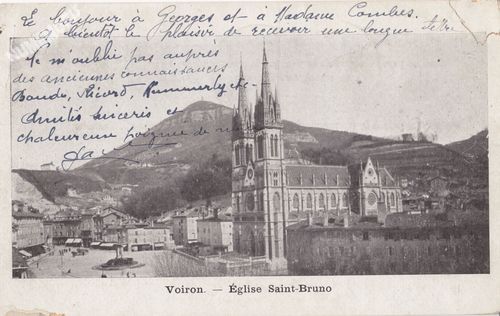 Le bonjour à Georges et à Madame Combes.
A bientôt le plaisir de recevoir une longue lettre
Je m'oublie pas auprès
des anciennes connaissances
Baudo, Ricord,
Amitiés sincères et
chaleureuse poignée de
Voiron. — Église Saint-Bruno